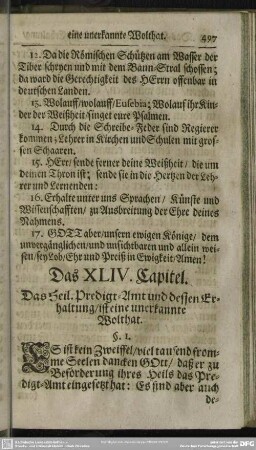 eine unerkannte Wolthat. 497
12. Da die Römischen Schützen am Wasser der
Tiber schryen und mit dem Bann-Stral schossen;
da ward die Gerechtigkeit des HErrn offenbar in
deutschen Landen.
13. Wolauff/wolauff/Eusebia; Wolauf ihr Kin-
der der Weißheit/singet eure Psalmen.
14. Durch die Schreibe-Feder sind Regierer
kommen; Lehrer in Kirchen und Schulen mit gros-
sen Schaaren.
15. HErr/sende ferner deine Weißheit/ die um
deinen Thron ist; sende sie in die Hertzen der Leh-
rer und Lernenden:
16. Erhalte unter uns Sprachen/ Künste und
Wissenschafften/ zu Ausbreitung der Ehre deines
Nahmens.
17. GOTT aber/unsern ewigen Könige/ dem
unvergänglichen/und unsichtbaren und allein wei-
sen/sey Lob/Ehr und Preiß in Ewigkeit/Amen!
Das XLIV. Capitel.
Das Heil. Predigt-Amt und dessen Er-
haltung/ist eine unerkannte
Wolthat.
§. 1.
ES ist kein Zweiffel/viel tausend from-
me Seelen dancken GOtt/ daß er zu
Beförderung ihres Heils das Pre-
digt-Amt eingesetzt hat: Es sind aber auch
de-